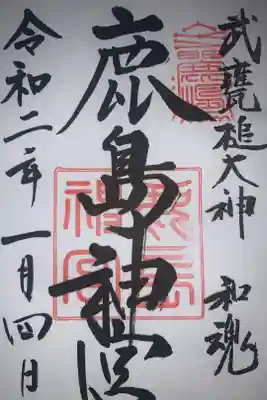 武甕槌大神 和魂
鹿島神宮
令和二年 一月四日